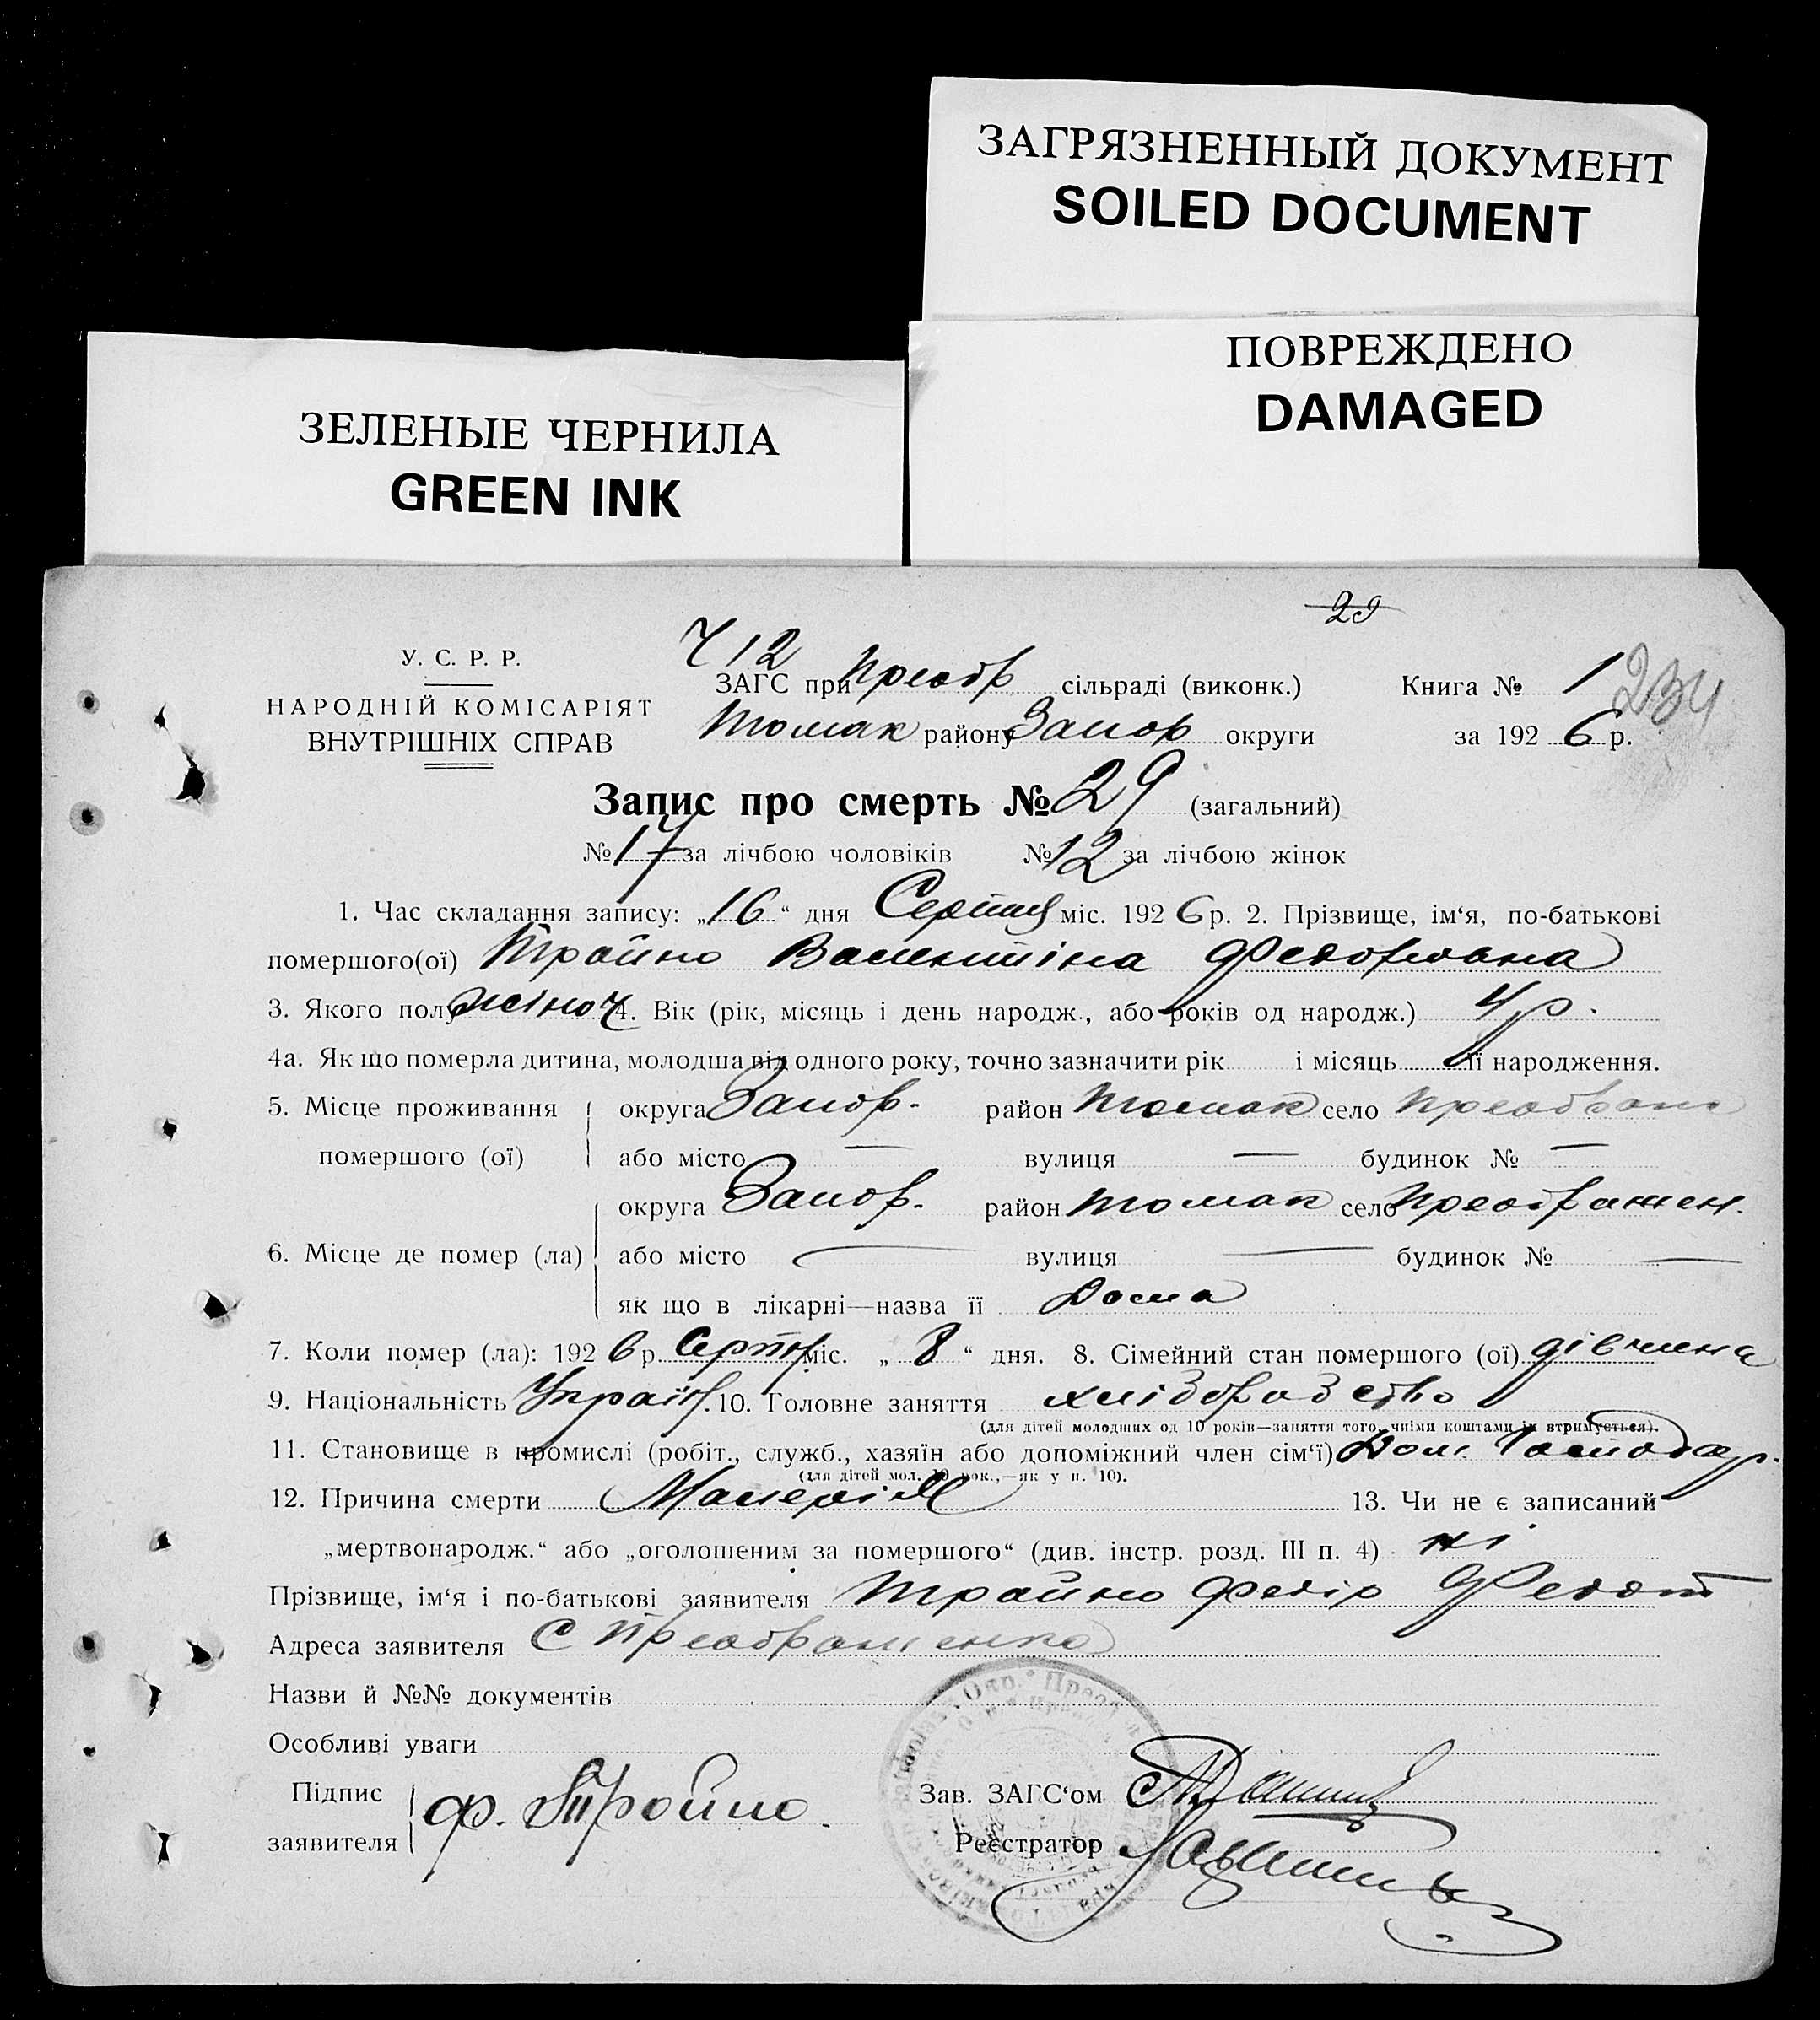 ЗАГРЯЗНЕННЫЙ ДОКУМЕНТ
SOILED DOCUMENT
ПОВРЕЖДЕНО
DAMAGED
ЗЕЛЕНЫЕ ЧЕРНИЛА
GREEN INK
29
Ч 12
У. С. Р. Р.
НАРОДНІЙ КОМІСАРІЯТ
ВНУТРІШНІХ СПРАВ
ЗАГС при Преобр сільраді (виконк.) Книга № 1 234
Токмак району Запор округи за 1926 р.
Запис про смерть № 29 (загальний)
№ 17 за лічбою чоловіків № 12 за лічбою жінок
1. Час складання запису: „16“ дня Серпня міс. 1926 р. 2. Прізвище, ім‘я, по-батькові
помершого(ої) Трайно Валентіна Федоровна
3. Якого полу жіноч 4. Вік (рік, місяць і день народж., або років од народж.) 4 р.
4а. Як що померла дитина, молодша від одного року, точно зазначити рік і місяць її народження.
5. Місце проживання округа Запор. район Токмак село Преображен
помершого (ої) або місто — вулиця — будинок № —
округа Запор. район Токмак село Преображен.
6. Місце де помер (ла) або місто — вулиця — будинок № —
як що в лікарні—назва її Дома
7. Коли помер (ла): 1926 р. Серпня міс. „8“ дня. 8. Сімейний стан помершого (ої) дівчина
9. Національність Україн. 10. Головне заняття хліборобство
(для дітей молодших од 10 років—заняття того, чиїми коштами їх втримується).
11. Становище в промислі (робіт., служб., хазяїн або допоміжний член сім‘ї) Дом. Господар.
(для дітей мол. 10 рок.,—як у п. 10).
12. Причина смерти Малерія 13. Чи не є записаний
„мертвонародж.“ або „оголошеним за помершого“ (див. інстр. розд. III п. 4) ні
Прізвище, ім‘я і по-батькові заявителя Трайно Федір Федот
Адреса заявителя С Преображенка
Назви й №№ документів
Особливі уваги
Підпис заявителя Ф. Тройно. Зав. ЗАГС‘ом
Реєстратор